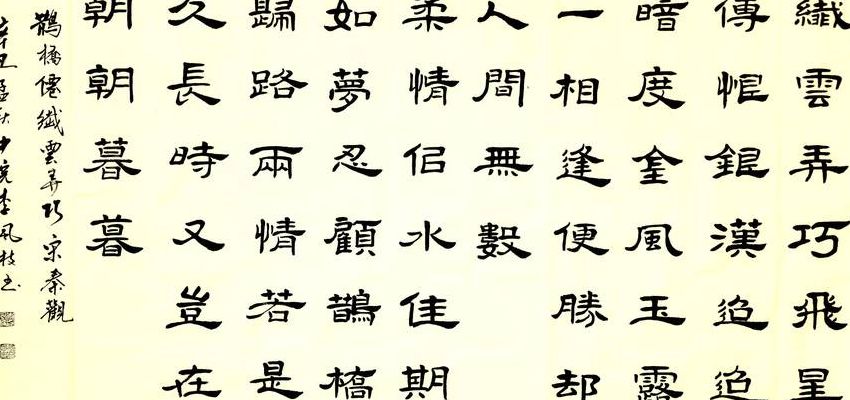 纖雲弄巧飛星
傳恨銀漢迢迢
暗度金風玉露
一相逢便勝却
人間無數
柔情佀水佳期
如夢忍顧鵲橋
歸路兩情若是
久長時又豈在
朝朝暮暮
鵲橋僊纖雲弄巧宋秦觀
辛丑孟秋李风枝书